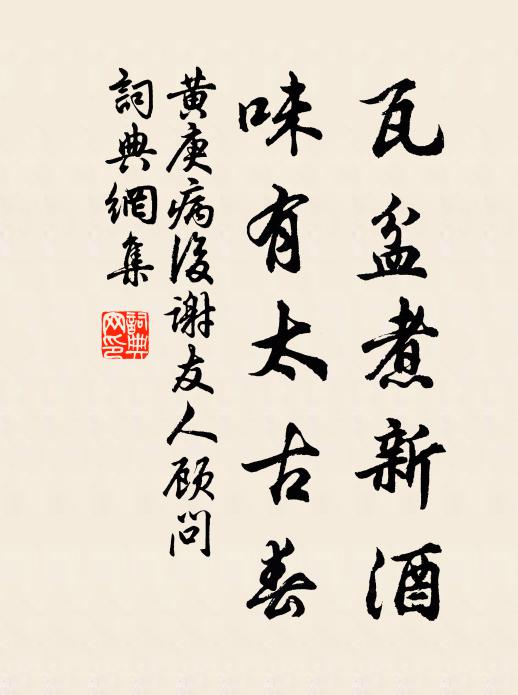 瓦盆煮新酒
味有太古春
黄庚病後謝友人顾問
詞典網集
詞典
网印